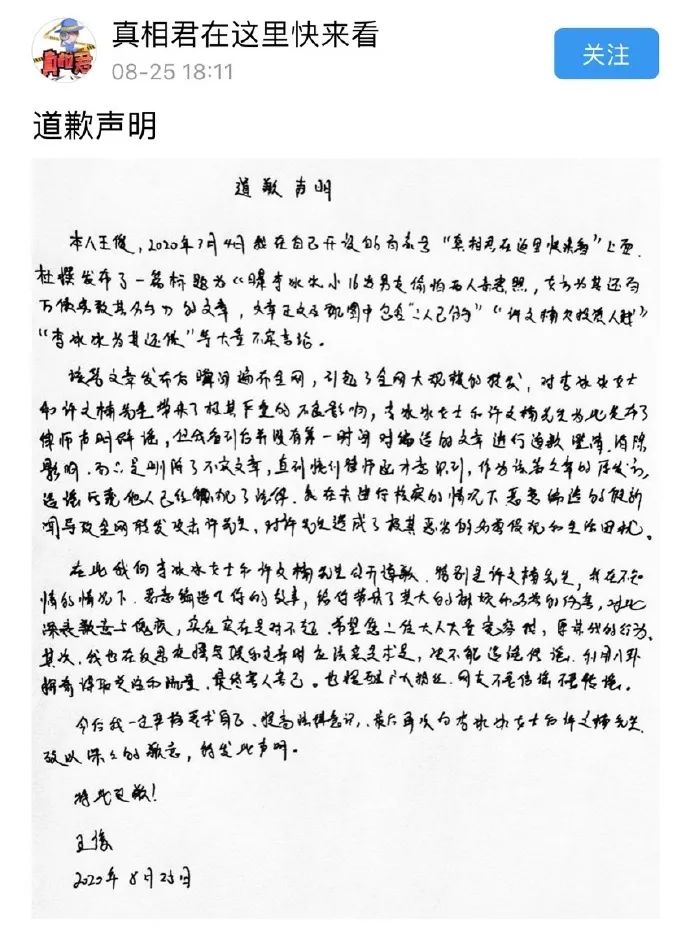 真相君
真相君在这里快来看
08-25 18:11
关注
道歉声明
道歉声明
本人王俊,2020年7月4日我在自己开设的百家号“真相君在这里快来看”上面
杜撰发布了一篇标题为《曝李冰冰小16岁男友偷拍两人亲密照,女方为其还百
万债务致其分手》的文章,文章正文及配图中包含“二人已分手”“许文楠欠投资人钱”
“李冰冰为其还债”等大量不实言论。
该篇文章发布后瞬间遍布全网,引起了全网大规模的转发,对李冰冰女士
和许文楠先生带来了极其严重的不良影响,李冰冰女士和许文楠先生为此发布了
律师声明辟谣,但我看到后并没有第一时间对编造的文章进行道歉 澄清 消除
影响。而只是删除了不实文章,直到收到律师函才意识到,作为该篇文章的原发布,
造谣诋毁他人已经触犯了法律。我在未进行核实的情况下恶意编造的假新
闻导致全网转发攻击许先生,对许先生造成了极其恶劣的名誉侵犯和生活困扰。
在此我向李冰冰女士和许文楠先生公开道歉。特别是许文楠先生,我在不知
情的情况下 恶意编造了你的故事,给你带来了莫大的麻烦和名誉的伤害,对此
深表歉意与愧疚,实在实在是对不起 希望您二位大人大量宽容我,原谅我的行为
其次,我也在反思在撰写娱乐文章时应该实事求是,决不能造谣传谣 利用八卦
猎奇谋取关注和流量,最终害人害己。也提醒广大粉丝 网友不信谣不传谣。
今后我一定严格要求自己、提高法律意识,最后再次向李冰冰女士和许文楠先生
致以深深的歉意,特发此声明。
特此致歉!
王俊
2020年8月25日